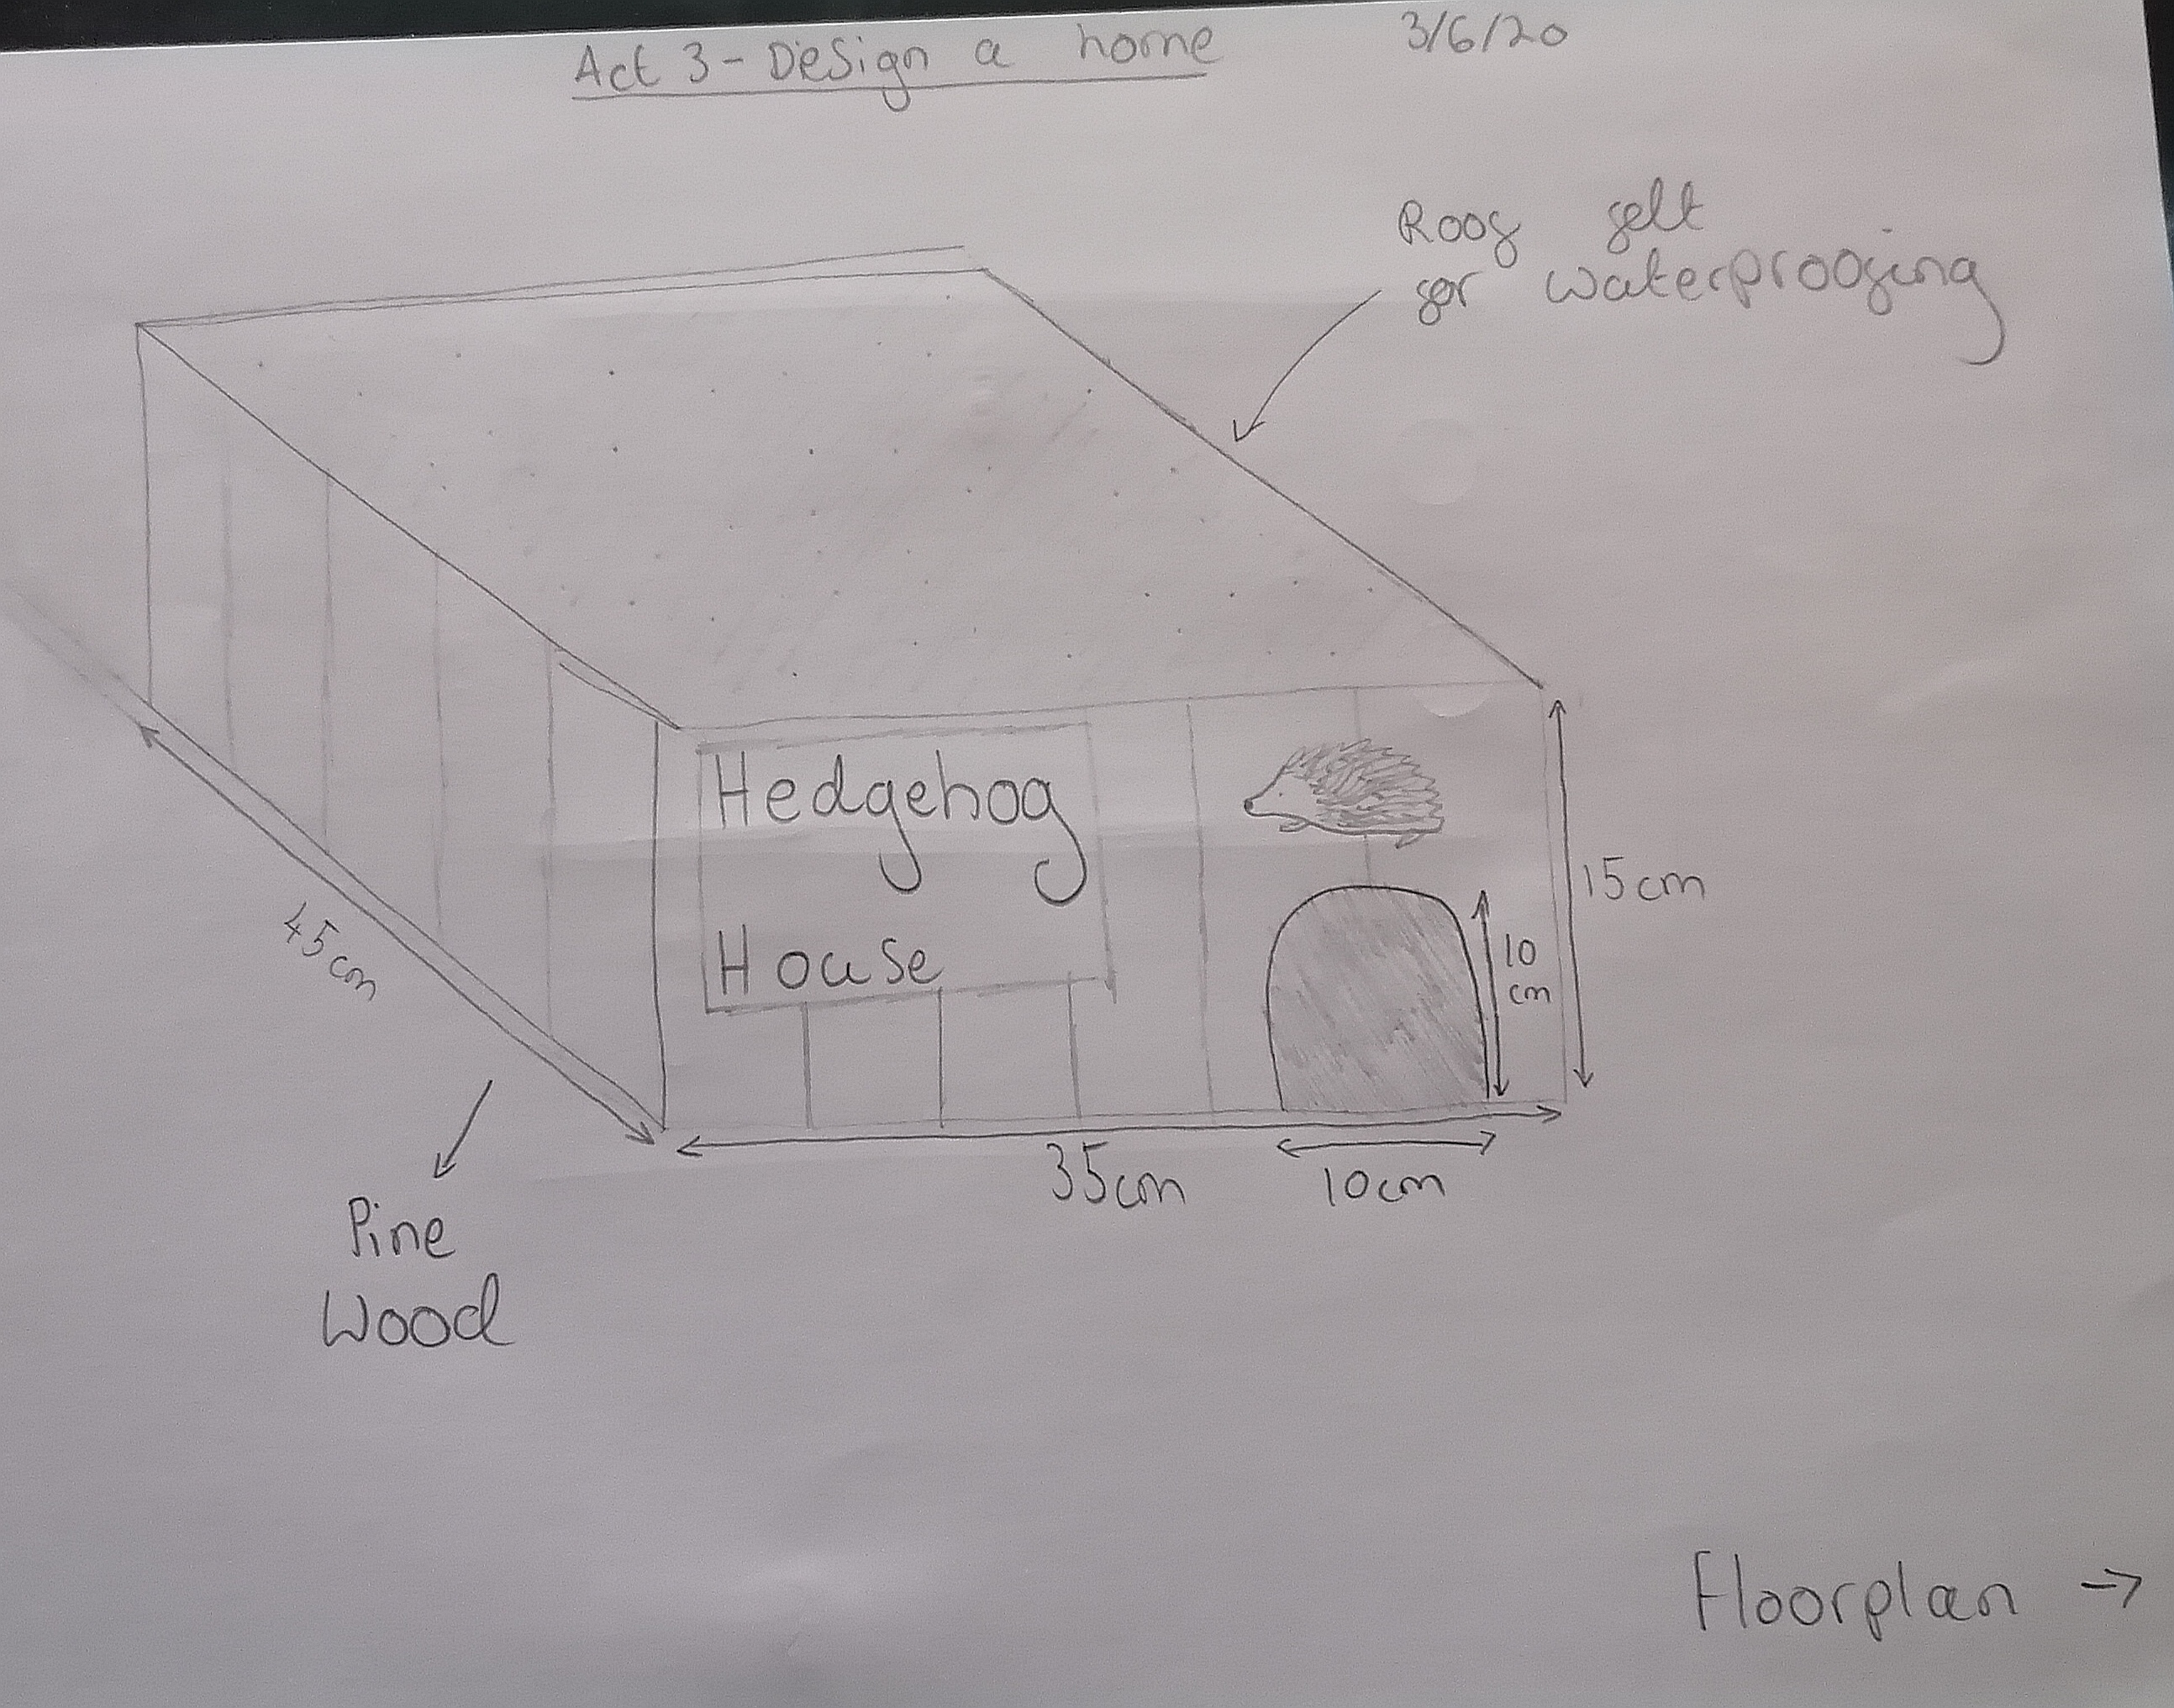 Act 3 - Design a home 3/6/20
Roof felt
for waterproofing
Hedgehog
House
15cm
10
cm
45cm
35cm
10cm
Pine
Wood
Floorplan →